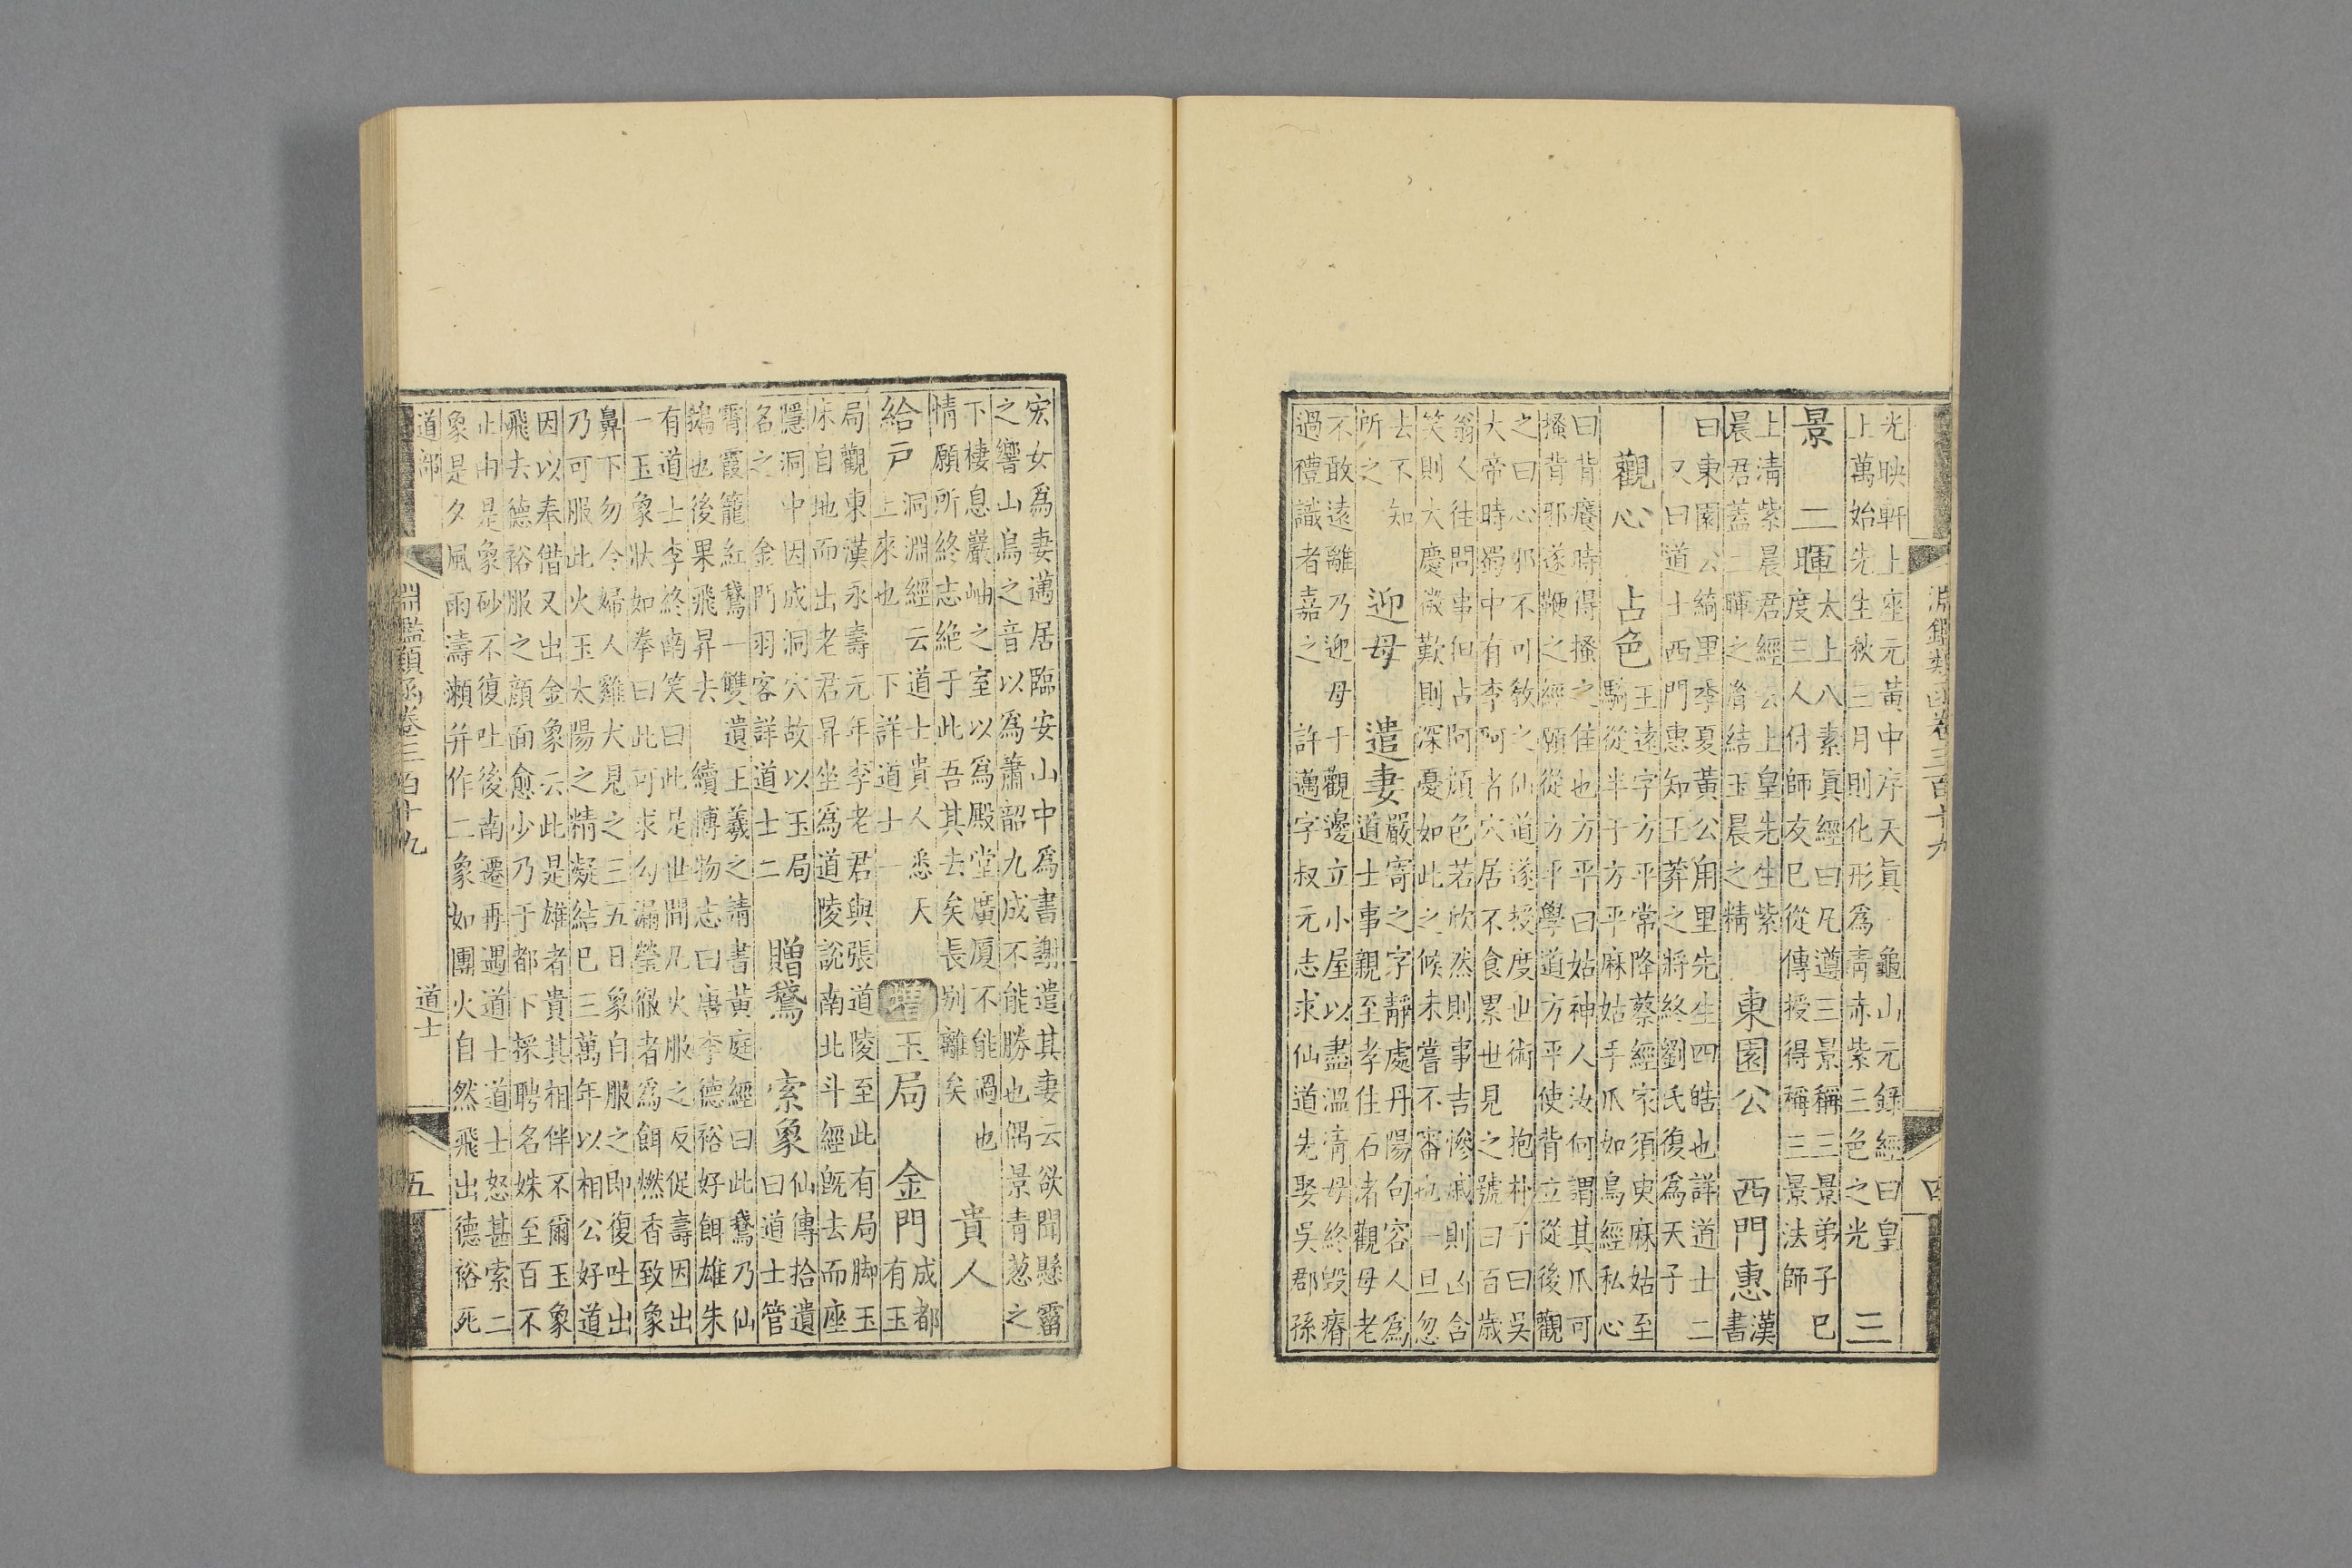 淵鑑類函卷三百十九
四
光映軒上座元黃中序天眞 龜山元錄經曰皇
上萬始先生秋三月則化形爲青赤紫三色之光
三
景 二暉
太上八素眞經曰凡遵三景稱三景弟子巳
度三人付師友巳從傳授得稱三景法師
上清紫晨君經云上皇先生紫
晨君蓋二暉之胤結玉晨之精
東園公 西門惠
漢
書
曰東園公綺里季夏黃公甪里先生四皓也詳道士二
又曰道士西門惠知王莽之將終劉氏復爲天子
觀心 占色
王遠字方平常降蔡經家須臾麻姑至
騎從半于方平麻姑手爪如鳥經私心
曰背癢時得搔之佳也方平曰姑神人汝何謂其爪可
搔背邪遂鞭之經願從方平學道方平使背立從後觀
之曰心邪不可敎之仙道遂授度世術 抱朴子曰吳
大帝時蜀中有李阿者穴居不食累世見之號曰百歲
翁人往問事但占阿顏色若欣然則事吉慘戚則凶含
笑則大慶微歎則深憂如此之候未嘗不審也一旦忽
去不知
所之
迎母 遣妻
嚴寄之字靜處丹陽句容人爲
道士事親至孝住石渚觀母老
不敢遠離乃迎母于觀邊立小屋以盡溫凊母終毀瘠
過禮識者嘉之 許邁字叔元志求仙道先娶吳郡孫
宏女爲妻邁居臨安山中爲書謝遣其妻云欲聞懸霤
之響山鳥之音以爲蕭韶九成不能勝也偶景青蔥之
下棲息巖岫之室以爲殿堂廣厦不能過也
情願所終志絶于此吾其去矣長別離矣
貴人
給戶
洞淵經云道士貴人悉天
上來也 下詳道士一
增
玉局 金門
成都
有玉
局觀東漢永壽元年李老君與張道陵至此有局脚玉
床自地而出老君昇坐爲道陵説南北斗經旣去而座
隱洞中因成洞穴故以玉局
名之 金門羽客詳道士二
贈鵞 索象
仙傳拾遺
曰道士管
霄霞籠紅鵞一雙遺王羲之請書黃庭經曰此鵞乃仙
鵝也後果飛昇去 續博物志曰唐李德裕好餌雄朱
有道士李終南笑曰此是世間凡火服之反促壽因出
一玉象狀如拳曰此可求勾漏瑩徹者爲餌燃香致象
鼻下勿令婦人雞犬見之三五日象自服之卽復吐出
乃可服此火玉太陽之精凝結巳三萬年以相公好道
因以奉借又出金象云此是雄者貴其相伴不爾玉象
飛去德裕服之顏面愈少乃于都下採聘名姝至百不
止由是象砂不復吐後南遷再遇道士道士怒甚索二
象是夕風雨濤瀨并作二象如團火自然飛出德裕死
道部
淵鑑類函卷三百十九
道士
五